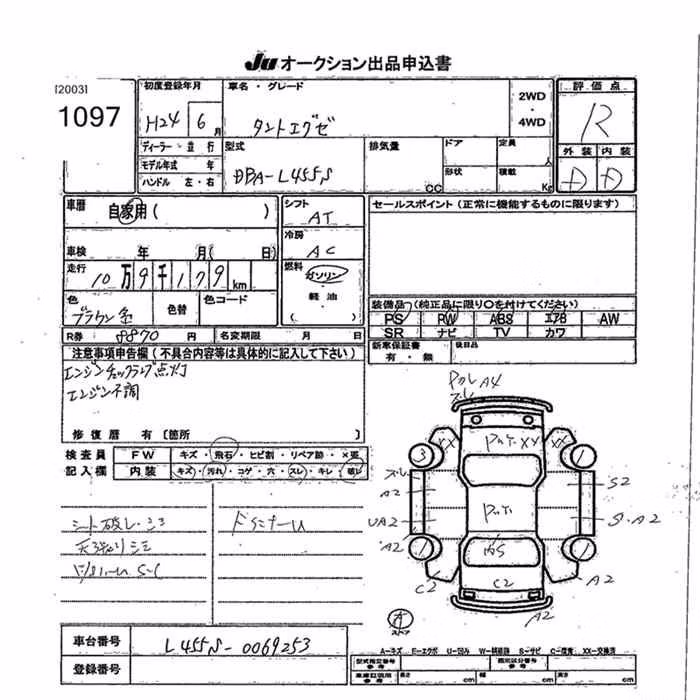 Ju オークション出品申込書
[2003]
1097
初度登録年月
H24 6月
車名・グレード
タントエグゼ
2WD
・
4WD
評価点
R
ディーラー・並行
モデル年式 年
ハンドル 左・右
型式
DBA-L455S
排気量
CC
ドア
形状
定員
人
積載
Kg
外装 内装
D D
車歴
自家用( )
シフト
AT
セールスポイント(正常に機能するものに限ります)
車検 年 月( 日)
冷房
AC
走行
10万9千179km
燃料
ガソリン
・
軽油
色
ブラウン系
色替
色コード
装備品(純正品に限り○を付けてください)
PS PW ABS エアB AW
SR ナビ TV カワ
R券 8870円
名変期限 月 日
新車保証書
有・無
後日品
注意事項申告欄(不具合内容等は具体的に記入して下さい)
エンジンチェックランプ点灯
エンジン不調
修復歴 有[箇所 ]
検査員
記入欄
FW キズ・飛石・ヒビ割・リペア跡・×要
内装 キズ・汚れ・コゲ・穴・スレ・キレ・破レ
シート破レ・シミ
A4
ズレ
XX
XX
3
1
ズレ
A2
S2
UA2
S・A2
A2
1
1
C2
C2
A2
A2
ストア
車台番号
L455S-0069253
登録番号
A-キズ E-エクボ U-凹み W-補修跡 S-サビ C-腐食 XX-交換済
型式指定番号
参考
類別区分番号
参考
車庫証明用
参考
長さ cm 幅 cm 高さ cm